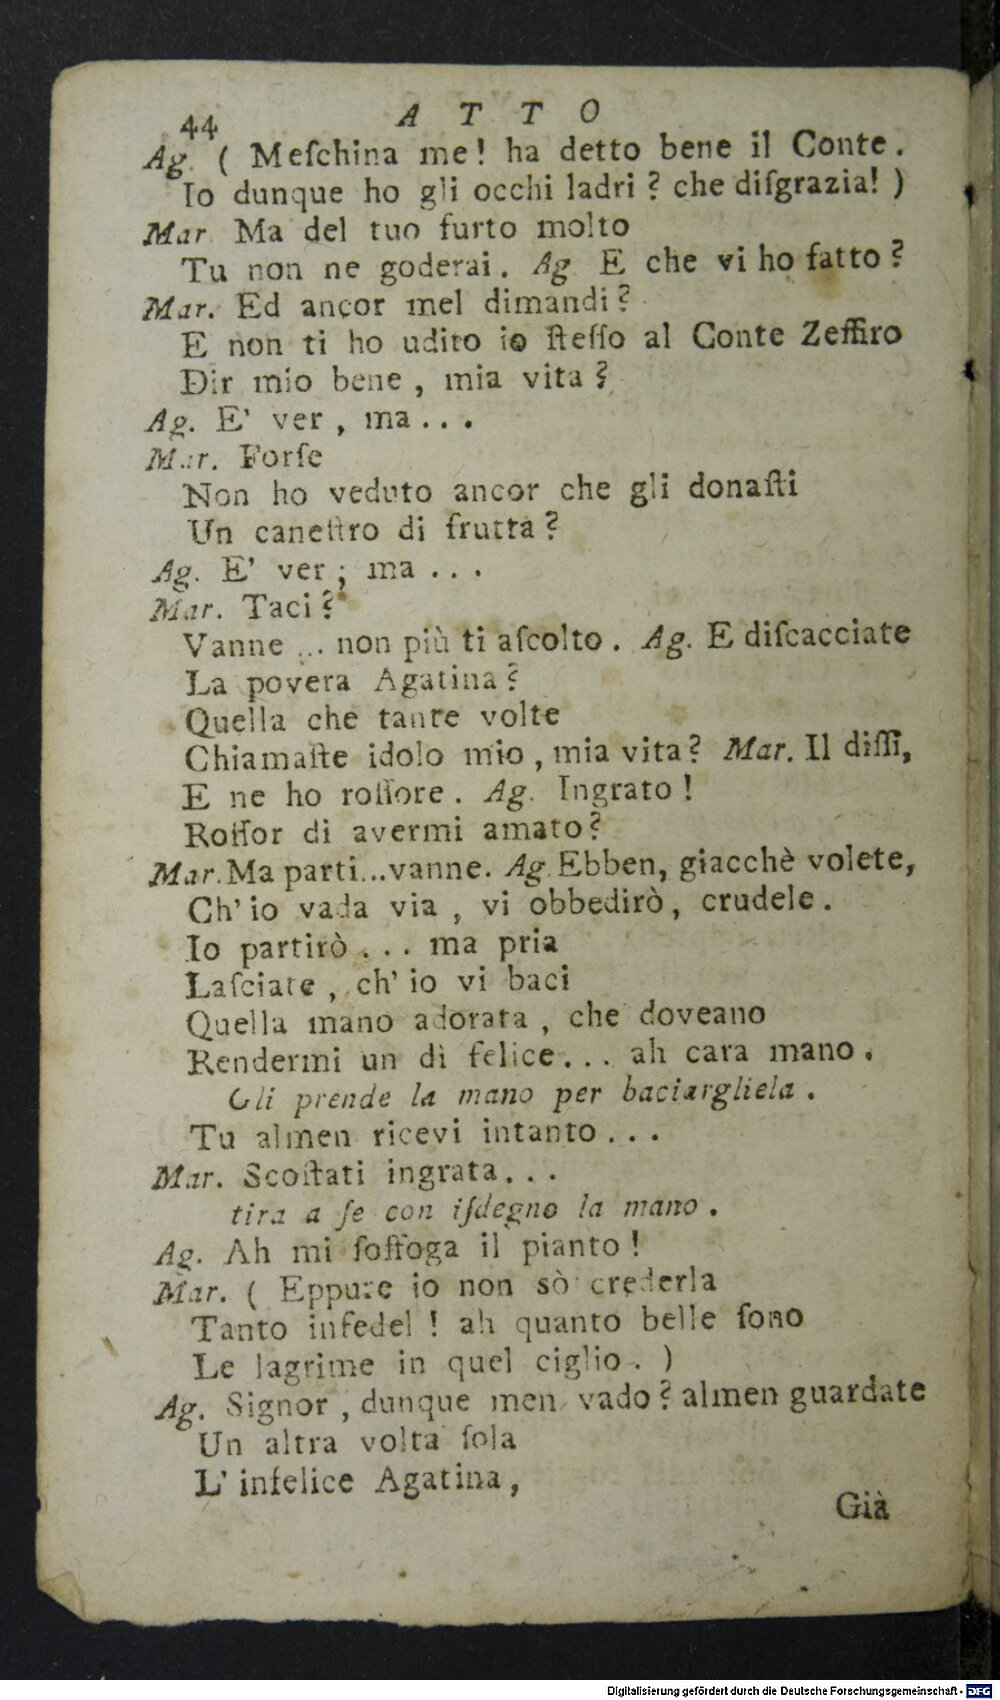 44 A T T O
Ag. ( Meſchina me! ha detto bene il Conte.
Io dunque ho gli occhi ladri? che diſgrazia! )
Mar. Ma del tuo furto molto
Tu non ne goderai. Ag. E che vi ho fatto?
Mar. Ed ancor mel dimandi?
E non ti ho udito io ſteſſo al Conte Zeffiro
Dir mio bene, mia vita?
Ag. E' ver, ma...
Mar. Forſe
Non ho veduto ancor che gli donaſti
Un caneſtro di frutta?
Ag. E' ver; ma...
Mar. Taci?
Vanne ... non più ti aſcolto. Ag. E diſcacciate
La povera Agatina?
Quella che tante volte
Chiamaſte idolo mio, mia vita? Mar. Il diſſi,
E ne ho roſſore. Ag. Ingrato!
Roſſor di avermi amato?
Mar. Ma parti...vanne. Ag. Ebben, giacchè volete,
Ch' io vada via, vi obbedirò, crudele.
Io partirò... ma pria
Laſciate, ch' io vi baci
Quella mano adorata, che doveano
Rendermi un dì felice... ah cara mano.
Gli prende la mano per baciargliela.
Tu almen ricevi intanto...
Mar. Scoſtati ingrata...
tira a ſe con iſdegno la mano.
Ag. Ah mi ſoffoga il pianto!
Mar. ( Eppure io non sò crederla
Tanto infedel! ah quanto belle ſono
Le lagrime in quel ciglio. )
Ag. Signor, dunque men vado? almen guardate
Un altra volta ſola
L' infelice Agatina,
Già
Digitalisierung gefördert durch die Deutsche Forschungsgemeinschaft - DFG